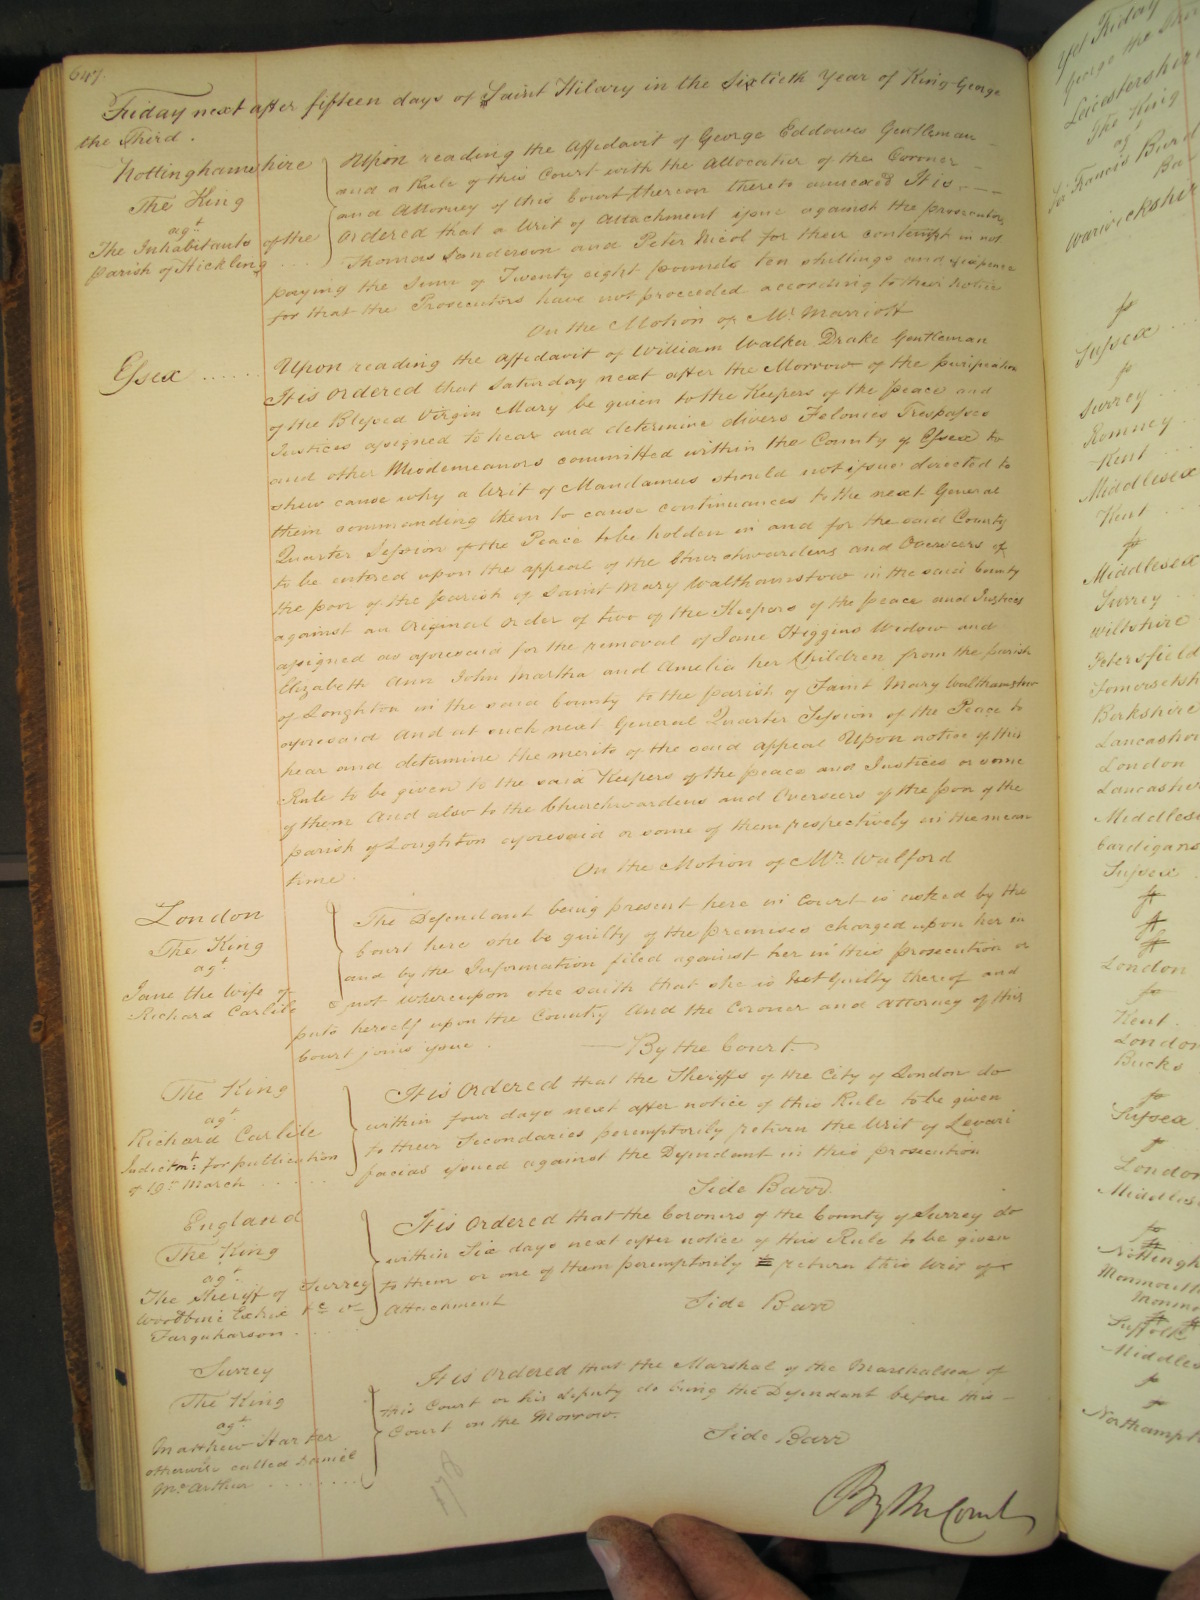 647.
Friday next after fifteen days of Saint Hilary in the Sixtieth Year of King George
the Third.
Nottinghamshire
The King
agt
The Inhabitants of the
parish of Hickling
Upon reading the Affidavit of George Eddowes Gentleman
and a Rule of this Court with the Allocatur of the Coroner
and Attorney of this Court thereon thereto annexed It is
Ordered that a Writ of Attachment issue against the prosecutors
Thomas Sanderson and Peter Nicol for their contempt in not
paying the Sum of Twenty eight pounds ten shillings and sixpence
for that the Prosecutors have not proceeded according to their notice
On the Motion of Mr. Marriott
Essex
Upon reading the affidavit of William Walker Drake Gentleman
It is Ordered that Saturday next after the Morrow of the purification
of the Blessed Virgin Mary be given to the Keepers of the peace and
Justices assigned to hear and determine divers Felonies Trespasses
and other Misdemeanors committed within the County of Essex to
shew cause why a Writ of Mandamus should not issue directed to
them commanding them to cause continuances to the next General
Quarter Session of the Peace to be holden in and for the said County
to be entered upon the appeal of the Churchwardens and Overseers of
the poor of the parish of Saint Mary Walthamstow in the said County
against an Original Order of two of the Keepers of the peace and Justices
assigned as aforesaid for the removal of Jane Higgins Widow and
Elizabeth Ann John Martha and Amelia her Children from the parish
of Loughton in the said County to the parish of Saint Mary Walthamstow
aforesaid And at such next General Quarter Session of the Peace to
hear and determine the merits of the said appeal Upon notice of this
Rule to be given to the said Keepers of the peace and Justices or some
of them And also to the Churchwardens and Overseers of the poor of the
parish of Loughton aforesaid or some of them respectively in the mean
time.
On the Motion of Mr. Walford
London
The King
agt
Jane the Wife of
Richard Carlile
The Defendant being present here in Court is asked by the
Court here she be guilty of the premises charged upon her in
and by the Information filed against her in this prosecution or
not whereupon she saith that she is Not Guilty thereof and
puts herself upon the Country And the Coroner and Attorney of this
Court joins issue.
By the Court.
The King
agt
Richard Carlile
Indictmt: for publication
of 19th March
It is Ordered that the Sheriffs of the City of London do
within four days next after notice of this Rule to be given
to their Secondaries peremptorily return the Writ of Levari
facias issued against the Defendant in this prosecution
Side Barr
England
The King
agt
The Sheriff of Surrey
Woodbine Exhix &c v
Farquharson
It is Ordered that the Coroners of the County of Surrey do
within Six days next after notice of this Rule to be given
to them or one of them peremptorily return this Writ of
Attachment
Side Barr
Surrey
The King
agt
Matthew Harker
otherwise called Daniel
McArthur
It is Ordered that the Marshal of the Marshalsea of
this Court or his Deputy do bring the Defendant before this
Court on the Morrow.
Side Barr
178
By the Court
Yet Friday
George the
Leicestershire
The King
agt
Sir Francis Burd
Ba
Warwickshire
Sussex
Surrey
Romney
Kent
Middlesex
Kent
Middlesex
Surrey
Wiltshire
Petersfield
Somersetsh
Berkshire
Lancashir
London
Lancashir
Middlese
Cardigans
Sussex
London
Kent.
London
Bucks
Sussex
London
Middles
Nottingh
Monmouth
Monmo
Suffolk
Middles
Northampt